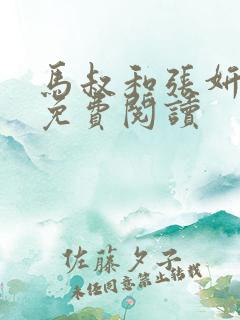 馬叔和張妍
免費閱讀
佐藤夕子
未经同意禁止转载